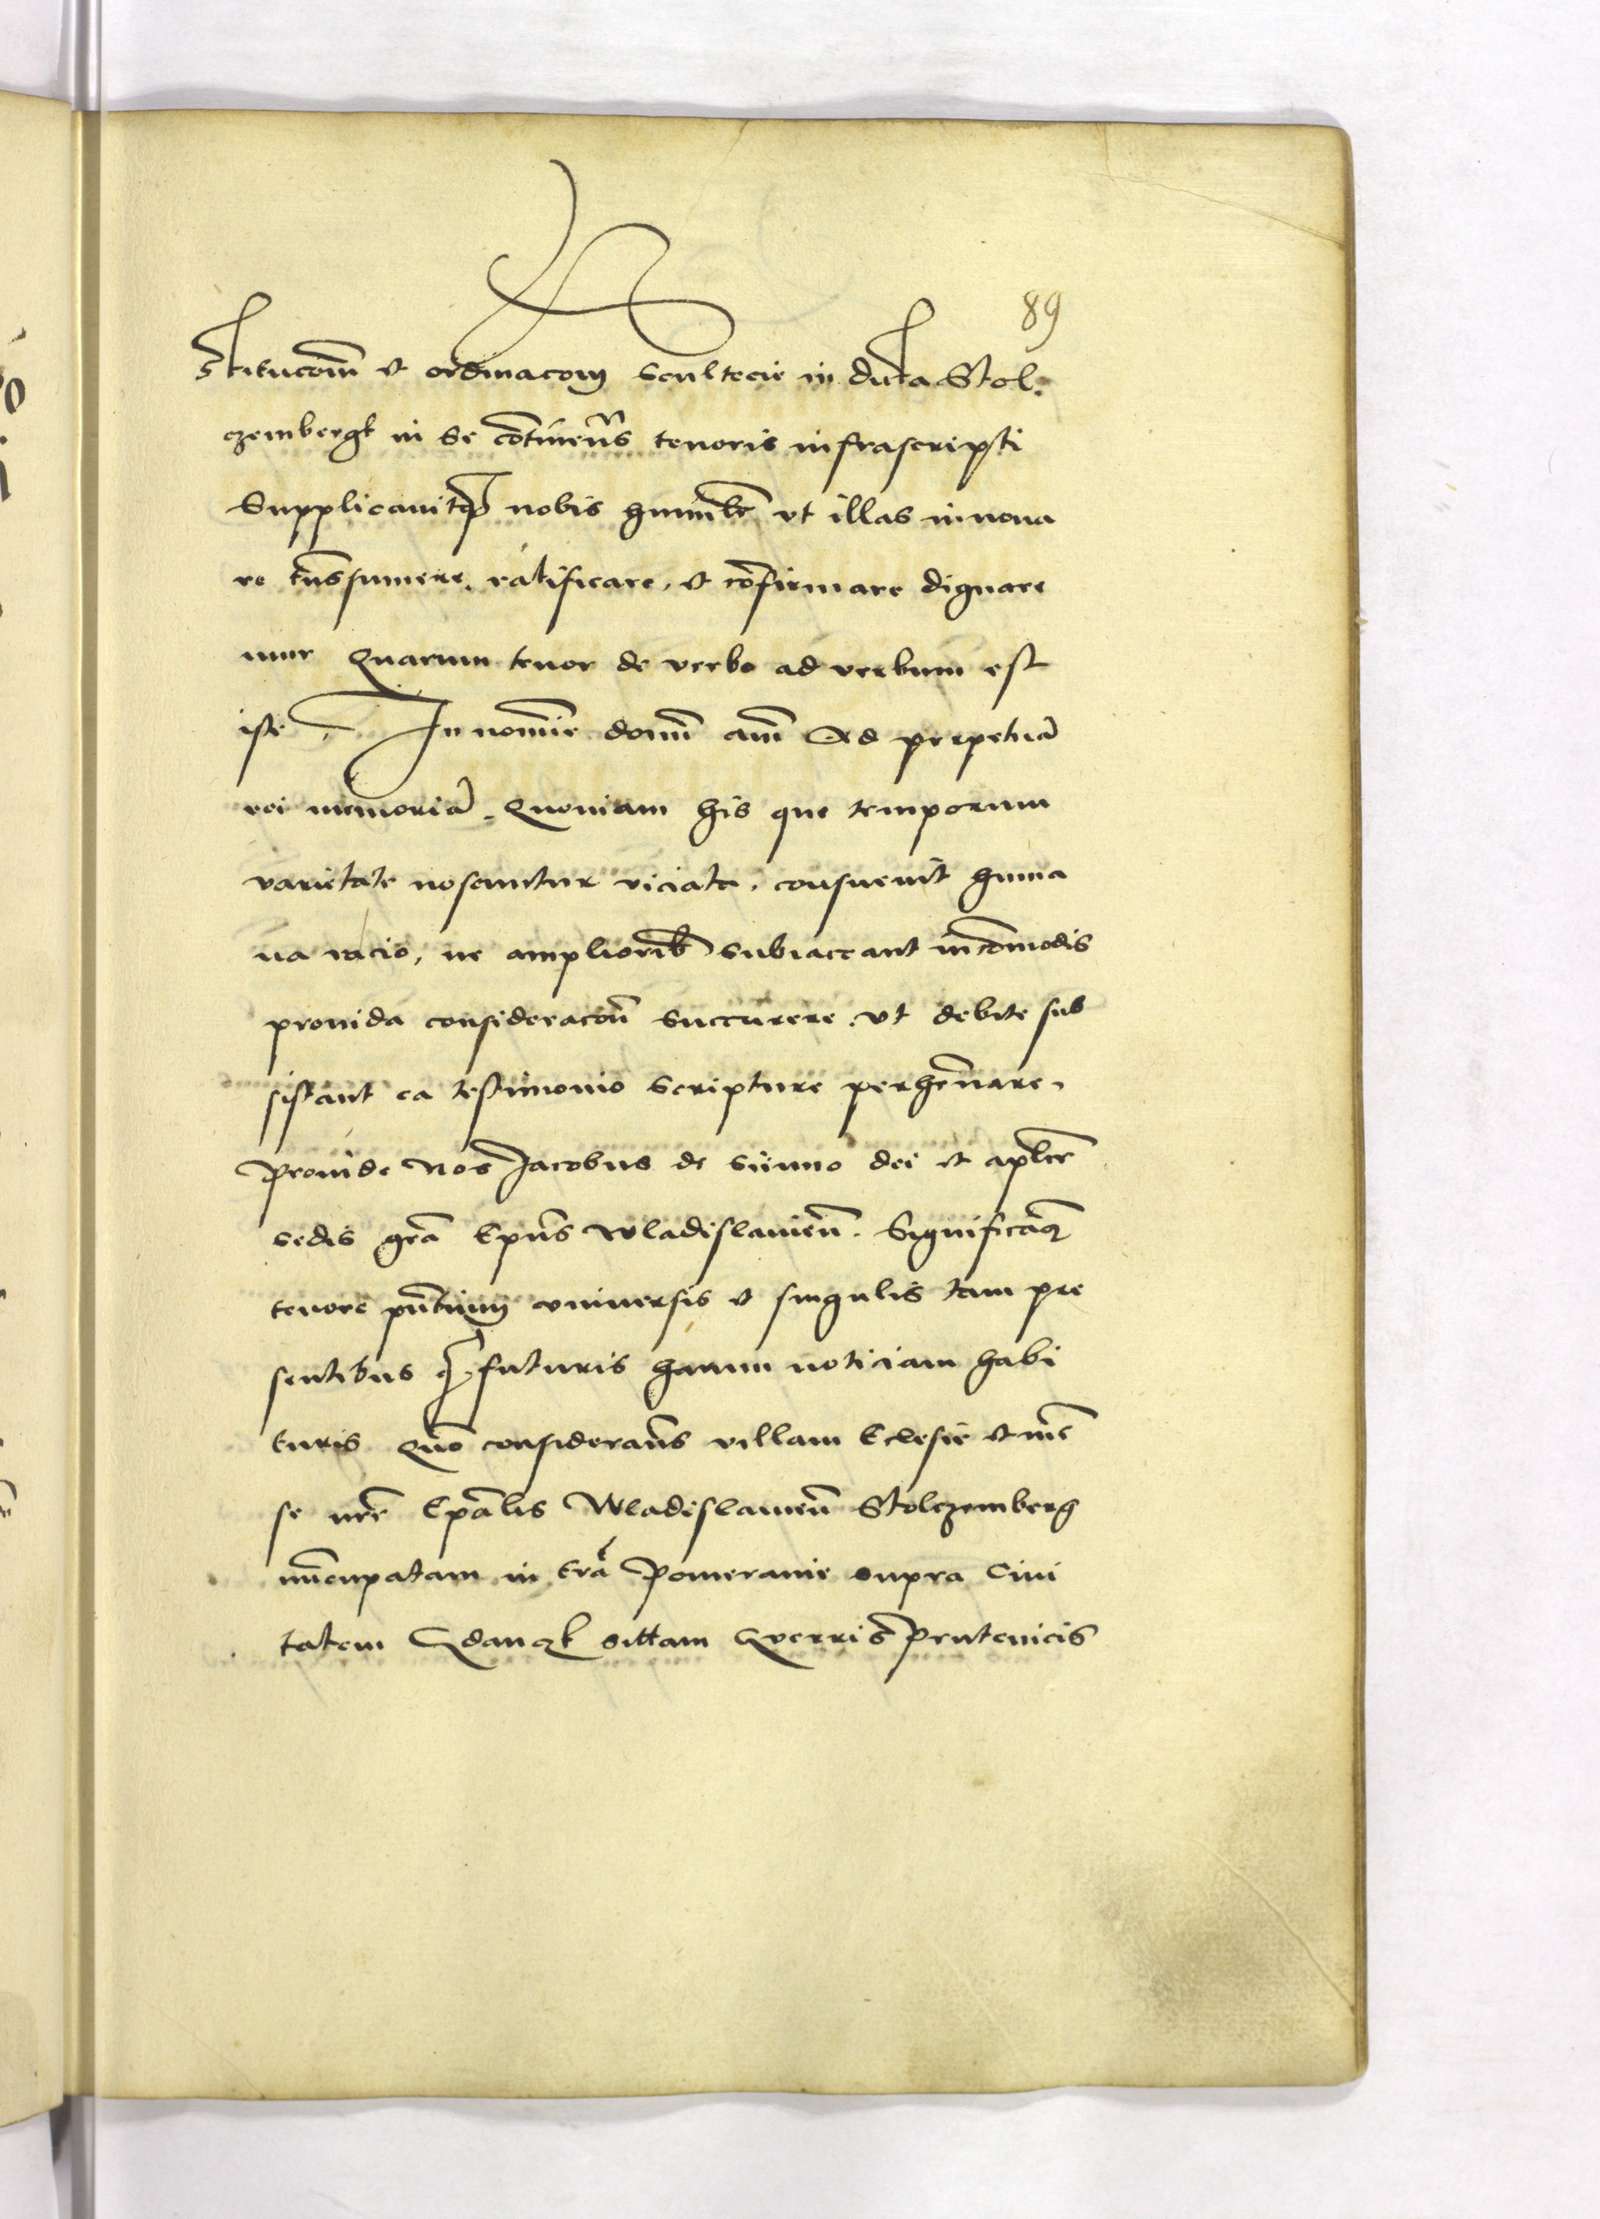 89
stitucom̄ et ordinacoīn scultecie in dicta Stol-
czembergk in se cōtineñs tenoris infrascripti
Supplicauitqȝ nobis humil̄r vt illas innoua
re trn̄ssumere, ratificare, et cōfirmare dignare
mur Quarum tenor de verbo ad verbum est
iste . In nomīe domī am̄ Ad perpetuā
rei memoriā. Quoniam his que temporum
varietate noscuntur viciata, consueuit huma
na racio, ne ampliorib subiaceant incōmodis
prouida consideracōn succurrere, vt debite sub
sistant ea testimonio scripture perhēnare.
Proinde Nos Jacobus de Sijnno dei et aplīce
sedis grā Ep̄us Wladislauien̄. Significamꝯ
tenore pn̄tium vniuersis et singulis tam pre
sentibus qȝ futuris harum noticiam habi
turis Quō considerañs villam Ecclesie et mē
se nrē Ep̄alis Wladislauien̄ Stolczemberg
nūcupatam in trā Pomeranie supra Ciui
tatem Gdanczk sittam Gwerris Prutenicis